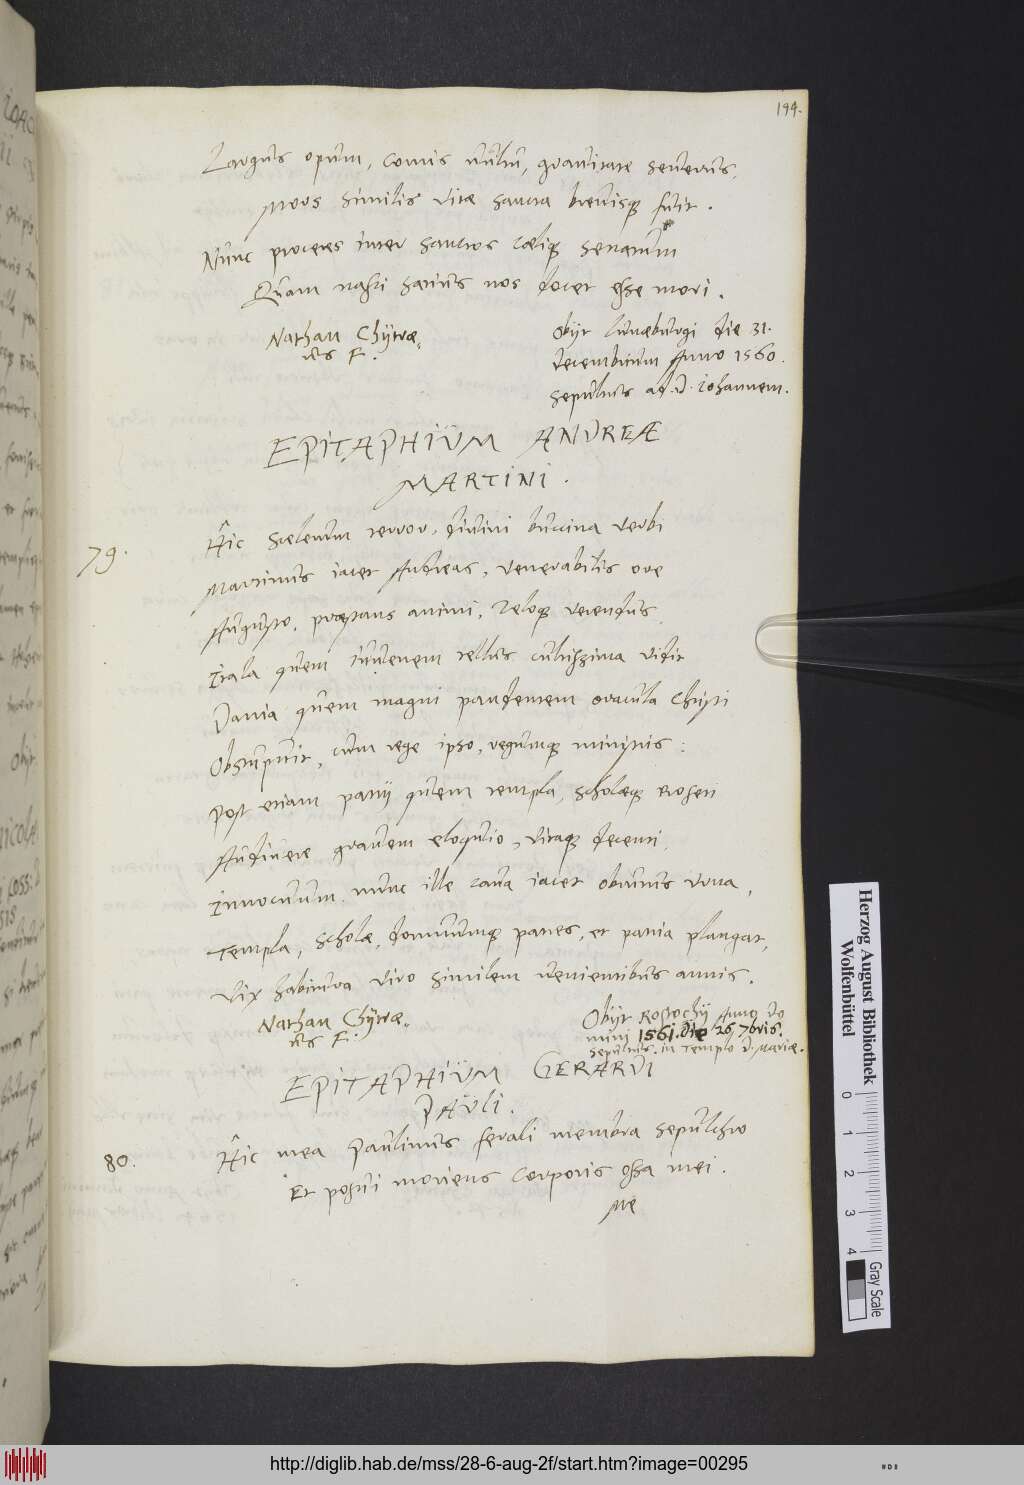 194.
Largus opum, comis vultu, gravitate severus,
Mors similis vitae sancta brevisq; fuit.
Nunc proceres inter sanctos caeliq; senatum
Quam nasci satius nos docet esse mori.
Nathan Chÿtrae„
us F.
Obijt Lunaeburgi die 31.
decembrium Anno 1560.
sepultus ad. D. Iohannem.
EPITAPHIUM ANDREÆ
MARTINI.
79.
Hîc scelerum terror, divini buccina verbi
Martinus iacet Andreas, venerabilis ore
Augusto, praestans animi, zeloq; verendus,
Itala quem iuvenem tellus cultissima vidit
Dania quem magni pandentem oracula Christi
Obstupuit, cum rege ipso, regumq; ministris:
Post etiam patrij quem templa, scholaeq; Rhoseti
Audivere gravem eloquio, vitaq; decenti,
Innocuum, nunc ille cava iacet obrutus urna,
Templa, scholae, domuumq; patres, et patria plangat,
Vix habitura viro similem venientibus annis.
Nathan Chÿtrae„
us F.
Obijt Rostochij Anno do
mini 1561. Die 26 7bris.
sepultus. in Templo D. Mariae.
EPITAPHIUM GERARDI
PAULI.
80.
Hîc mea Paulinus ferali membra sepulchro
Et posui moriens corporis ossa mei.
Me
Herzog August Bibliothek
Wolfenbüttel
0 1 2 3 4
Gray Scale
http://diglib.hab.de/mss/28-6-aug-2f/start.htm?image=00295